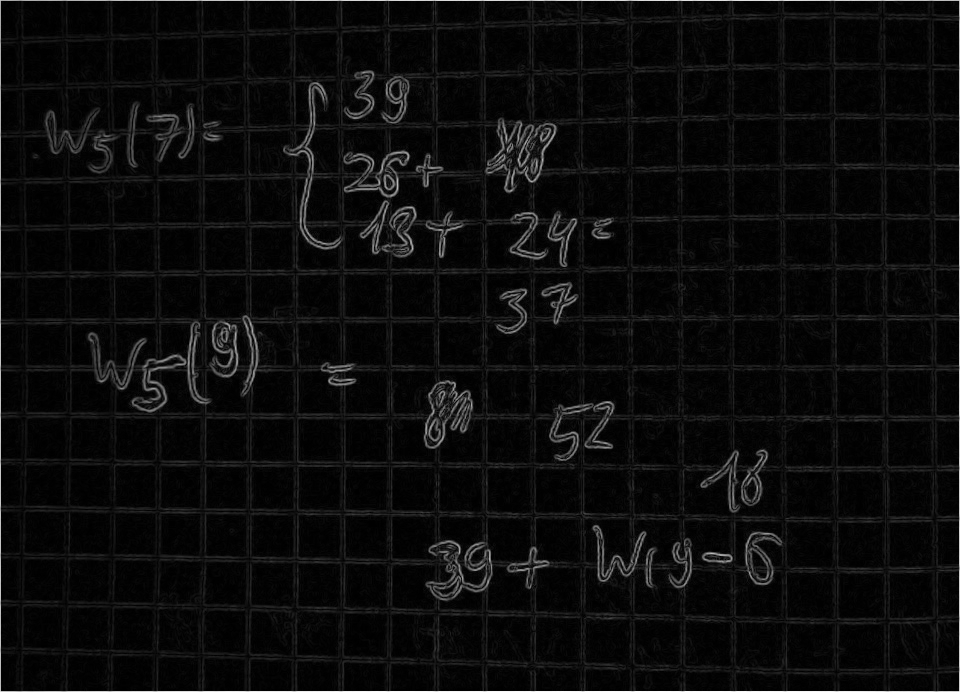 W5(7)= { 39
26+
13+ 24=
37
W5(9) =
52
16
39+ W(9-6